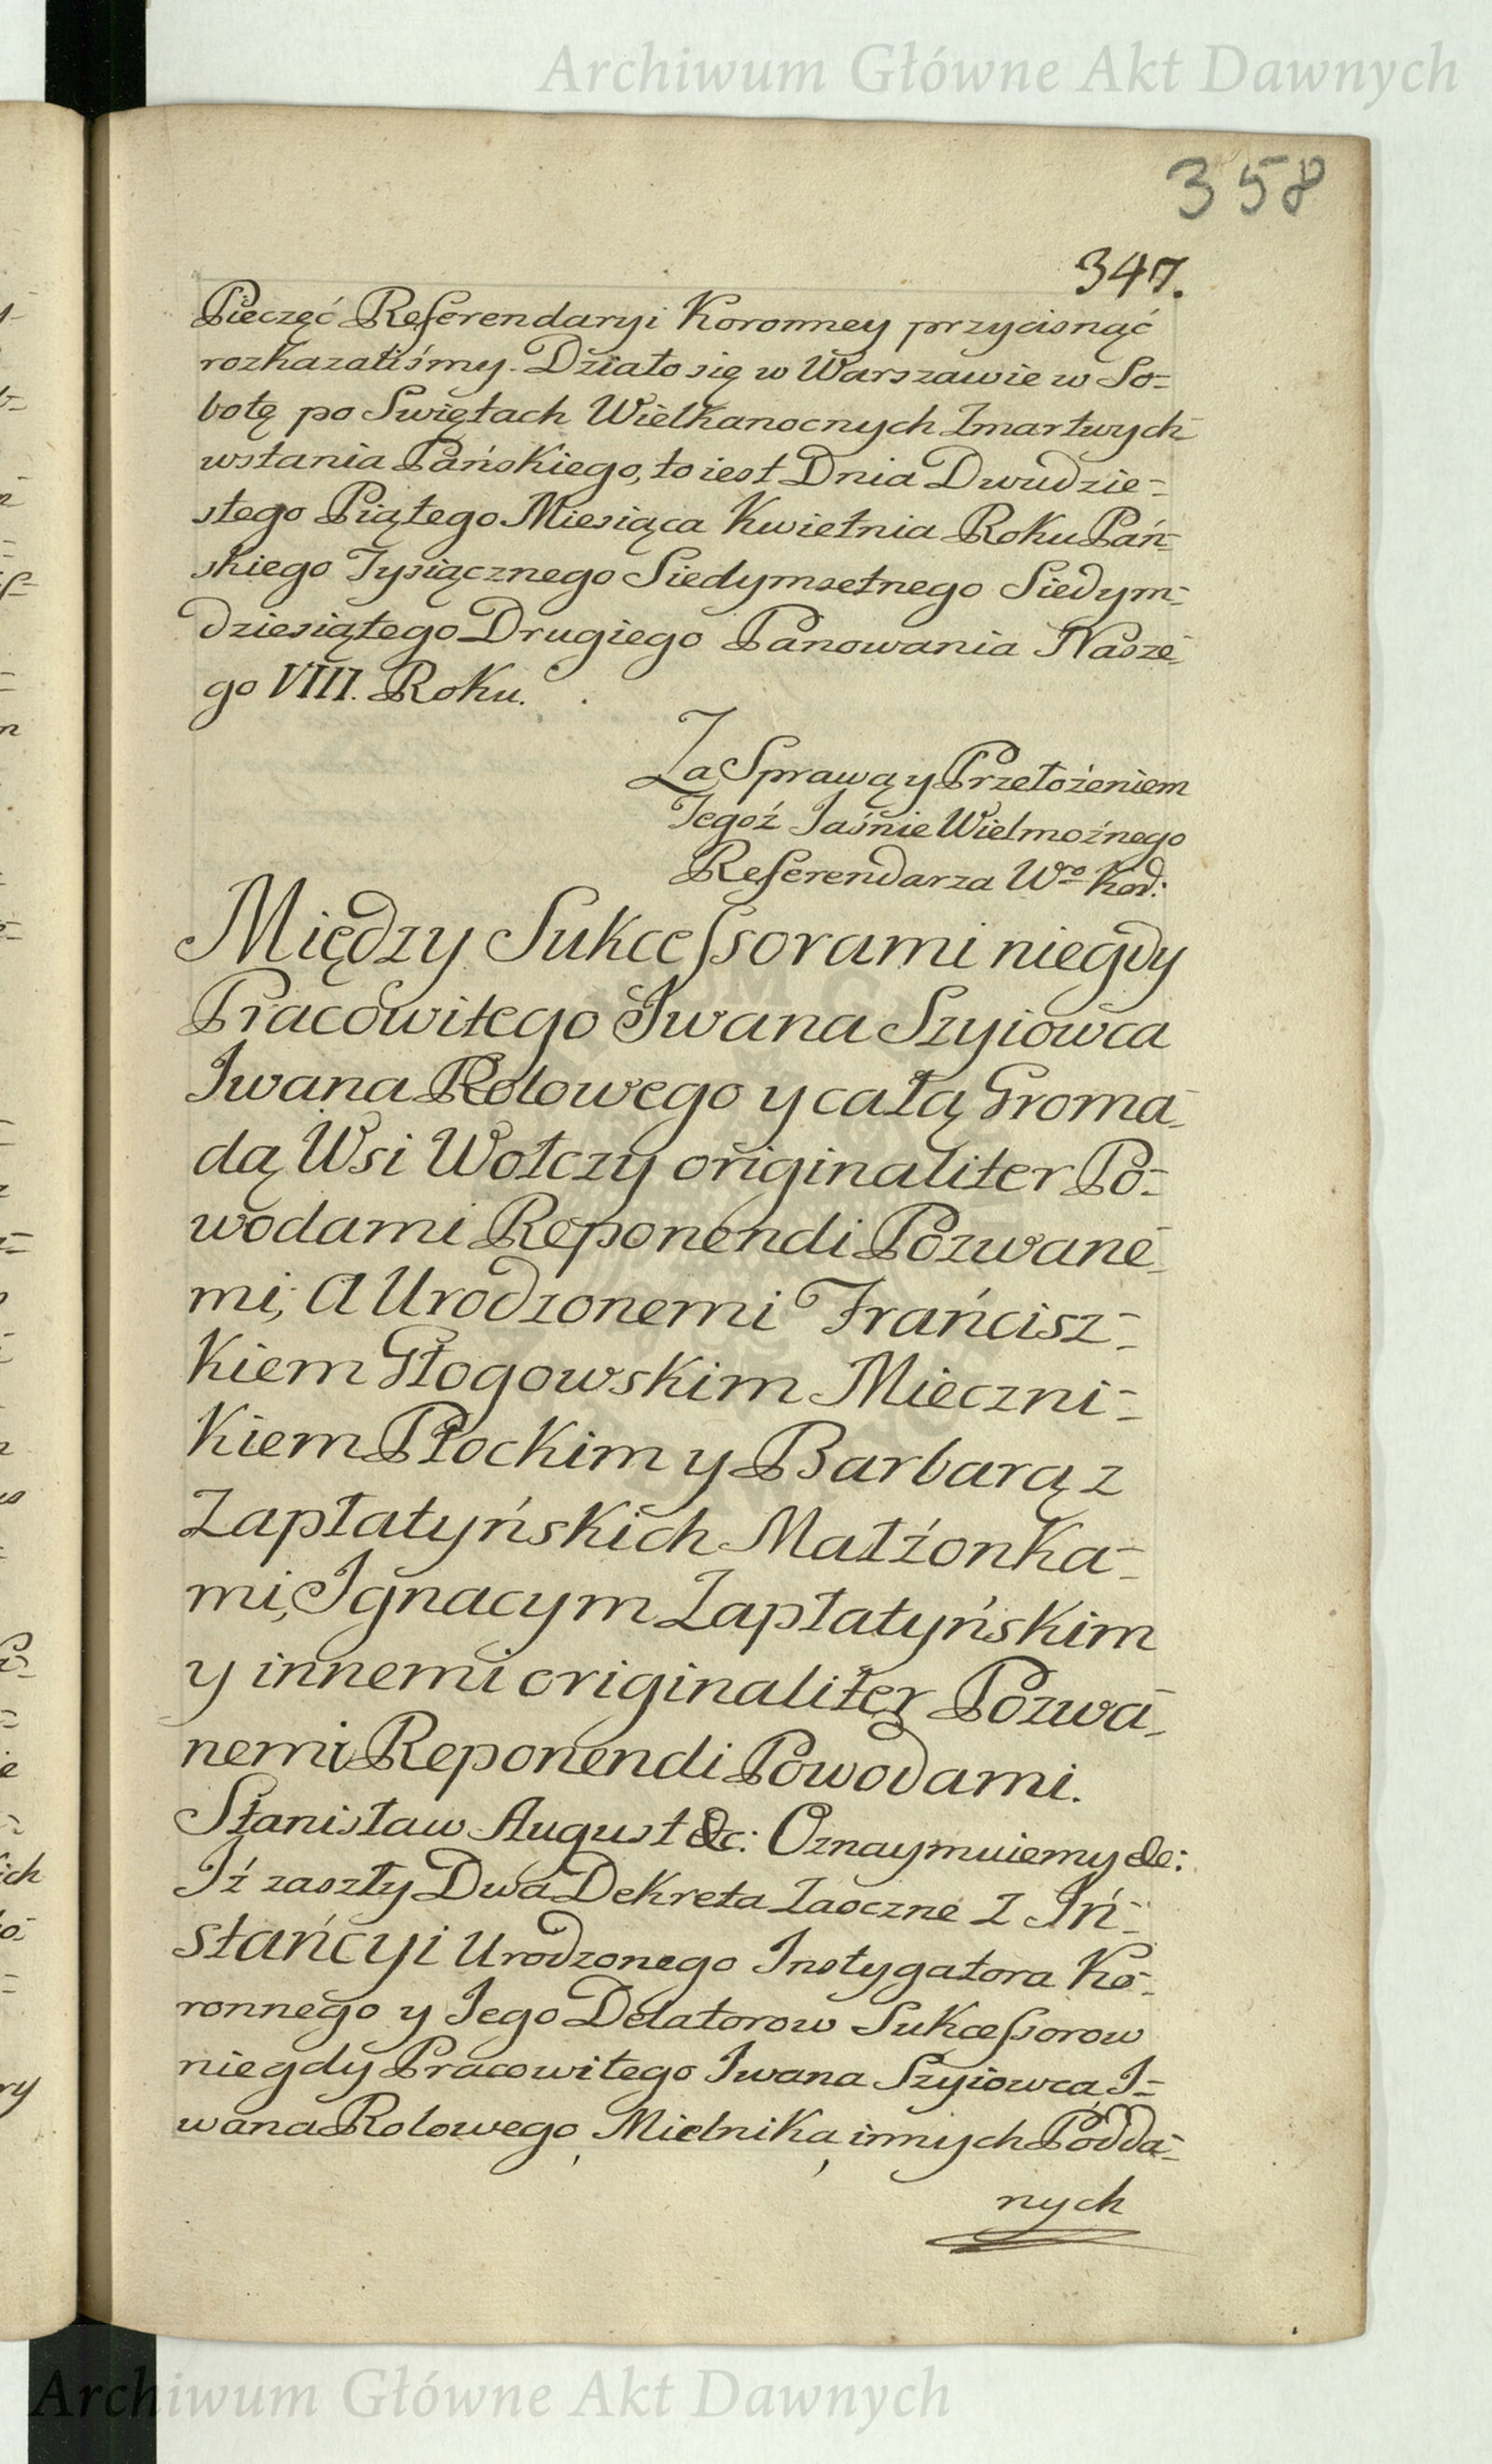 Archiwum Główne Akt Dawnych
358
347.
Pieczęć Referendaryi Koronney przycisnąć
rozkazaliśmy. Działo się w Warszawie w So=
botę po Swiętach Wielkanocnych Zmartwych
wstania Pańskiego, to iest Dnia Dwudzie=
stego Piątego Miesiąca Kwietnia Roku Pań=
skiego Tysiącznego Siedymsetnego Siedym=
dziesiątego Drugiego Panowania Nasze
go VIII. Roku.
Za Sprawą y Przełożeniem
Tegoż Jaśnie Wielmożnego
Referendarza Wo Kor:
Między Sukcessorami niegdy
Pracowitego Iwana Szyiowca
Iwana Rolowego y całą Groma
dą Wsi Wołczy originaliter Po=
wodami Reponendi Pozwane
mi; A Urodzonemi Francisz=
kiem Głogowskim Mieczni=
kiem Płockim y Barbarą z
Zapłatyńskich Małżonka=
mi, Ignacym Zapłatyńskim
y innemi originaliter Pozwa
nemi Reponendi Powodami.
Stanisław August &c: Oznaymuiemy &c:
Iż zaszły Dwa Dekreta Zaoczne z In=
stancyi Urodzonego Instygatora Ko=
ronnego y Iego Delatorow Sukcessorow
niegdy Pracowitego Iwana Szyiowca, I=
wana Rolowego, Mielnika, innych Podda=
nych
Archiwum Główne Akt Dawnych